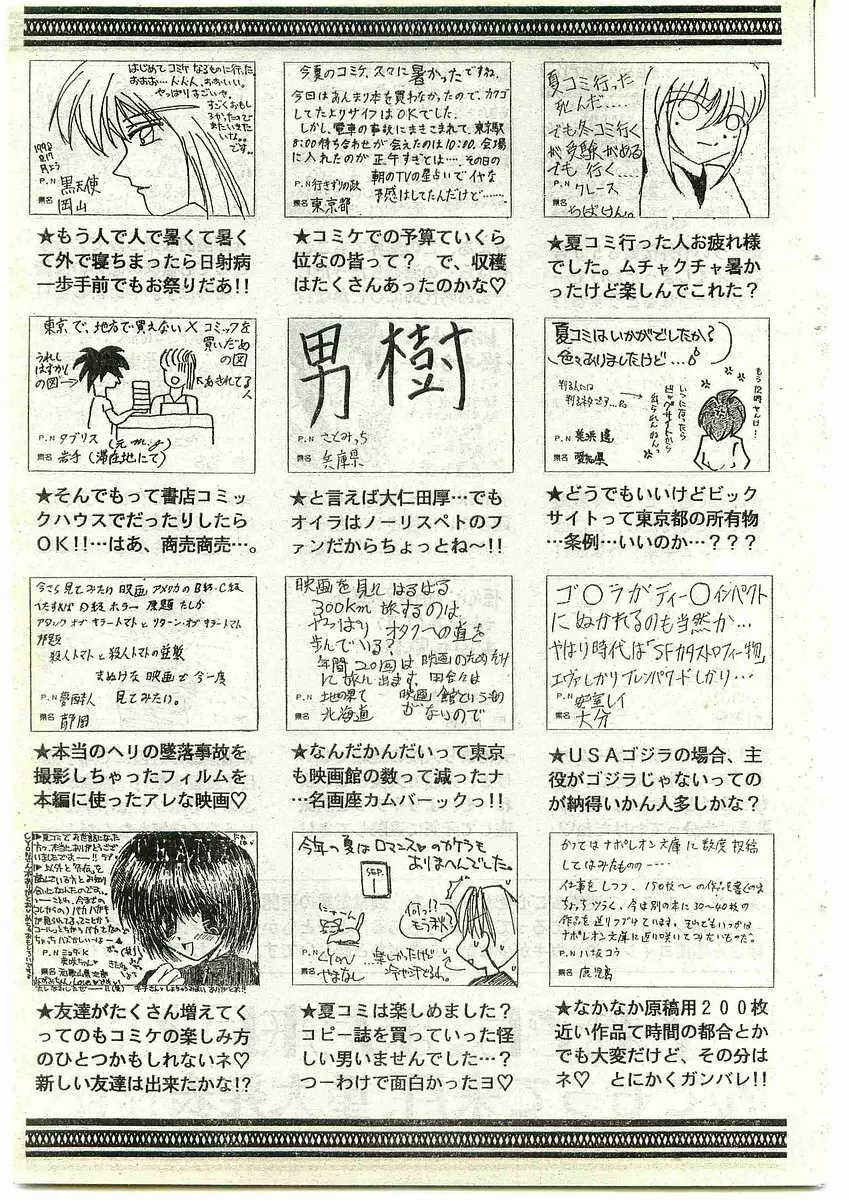 はじめてコミケなるものに行った。
おおお…人人人、おおいい。
やっぱりすごいや。
すごくおもし
ろかったので
また行きたい
いな。
です。
P.N 黒天使
県名 岡山
★もう人で人で暑くて暑く
て外で寝ちまったら日射病
一歩手前でもお祭りだあ!!
今夏のコミケ、久々に暑かったですね。
今回はあんまり本を買わなかったので、カクゴ
してたよりサイフはOKでした。
しかし、電車の事故にまきこまれて、東京駅
8:00待ち合わせが会えたのは10:00、会場
に入れたのが正午すぎとは…、その日の
朝のTVの星占いでイヤな
予感はしてたんだけど……
P.N 行きずりの政
県名 東京都
★コミケでの予算ていくら
位なの皆って? で、収穫
はたくさんあったのかな♡
夏コミ行った
死んだ……
でも冬コミ行く
が受験がある
でも行く……
P.N クレース
県名 ちばけん。
★夏コミ行った人お疲れ様
でした。ムチャクチャ暑か
ったけど楽しんでこれた?
東京で、地方で買えない X コミックを
買いだめ
の図
うれし
はずかし
の図→
P.N タブリス(元 m.g)
県名 岩手(滞在地にて)
★そんでもって書店コミッ
クハウスでだったりしたら
OK!!…はあ、商売商売…。
男樹
P.N さとみっち
県名 兵庫県
★と言えば大仁田厚…でも
オイラはノーリスペトのフ
ァンだからちょっとね〜!!
夏コミはいかがでしたか?
色々ありましたけど…。
判る人には
判るネタです…
いつになったら
ビッグサイトから
P.N 美浜 遙
県名 愛知県
★どうでもいいけどビック
サイトって東京都の所有物
…条例…いいのか…???
今さら見てみたい映画 アメリカのB級・C級
ひたすればD級ホラー 原題たしか
アタック オブ キラートマト と リターン・オブ キラートマト
邦題
殺人トマトと殺人トマトの逆襲
まぬけな映画で今一度
見てみたい。
P.N 夢面人
県名 静岡
★本当のヘリの墜落事故を
撮影しちゃったフィルムを
本編に使ったアレな映画♡
映画を見に はるばる
300km旅するのは
やっぱり オタクへの道を
歩んでいる?
年間20回は映画のためだけ
に旅に出ます。田舎には
映画館というもの
がないので
P.N 地の果て
県名 北海道
★なんだかんだいって東京
も映画館の数って減ったナ
…名画座カムバーックっ!!
ゴ〇ラがディー〇インパクト
にぬかれるのも当然か…
やはり時代は「SFカタストロフィー物」
エヴァしかりブレンパワードしかり…
P.N 安室レイ
県名 大分
★USAゴジラの場合、主
役がゴジラじゃないっての
が納得いかん人多しかな?
夏コミでお世話になった
方々、本当にありがとうござ
いました
★友達がたくさん増えてく
ってのもコミケの楽しみ方
のひとつかもしれないネ♡
新しい友達は出来たかな!?
今年の夏はロマンス♡のカケラも
ありまへんでした。
SEP.
1
何っ!?
もう秋?
…楽しかったけど
県名 やまなし
★夏コミは楽しめました?
コピー誌を買っていった怪
しい男いませんでした…?
つーわけで面白かったヨ♡
かつてはナポレオン文庫に数度投稿
してはみたものの----
仕事をしつつ、150枚〜の作品を書くのは
ちょっとツラく、今は別の本に30〜40枚の
作品を送りつづけています。それでもいつかは
ナポレオン文庫に返り咲いてみたいものだ。
P.N 八坂コウ
県名 鹿児島
★なかなか原稿用200枚
近い作品て時間の都合とか
でも大変だけど、その分は
ネ♡ とにかくガンバレ!!